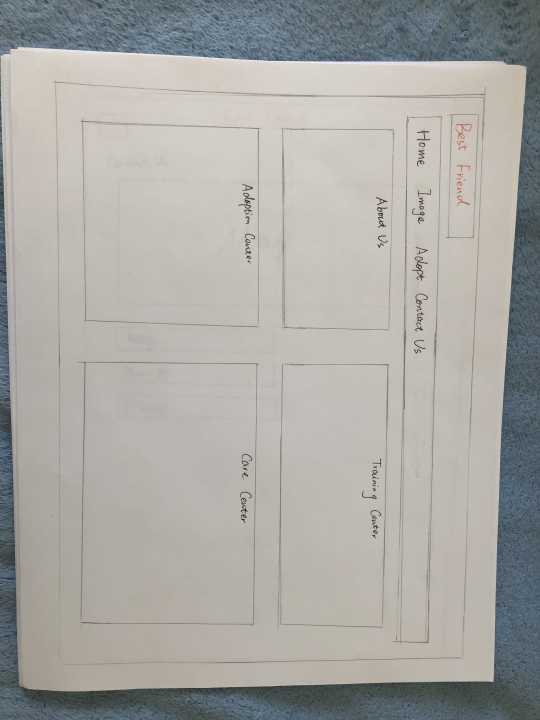 Best Friend
Home Image Adopt Contact Us
About Us
Training Center
Adoption Center
Care Center